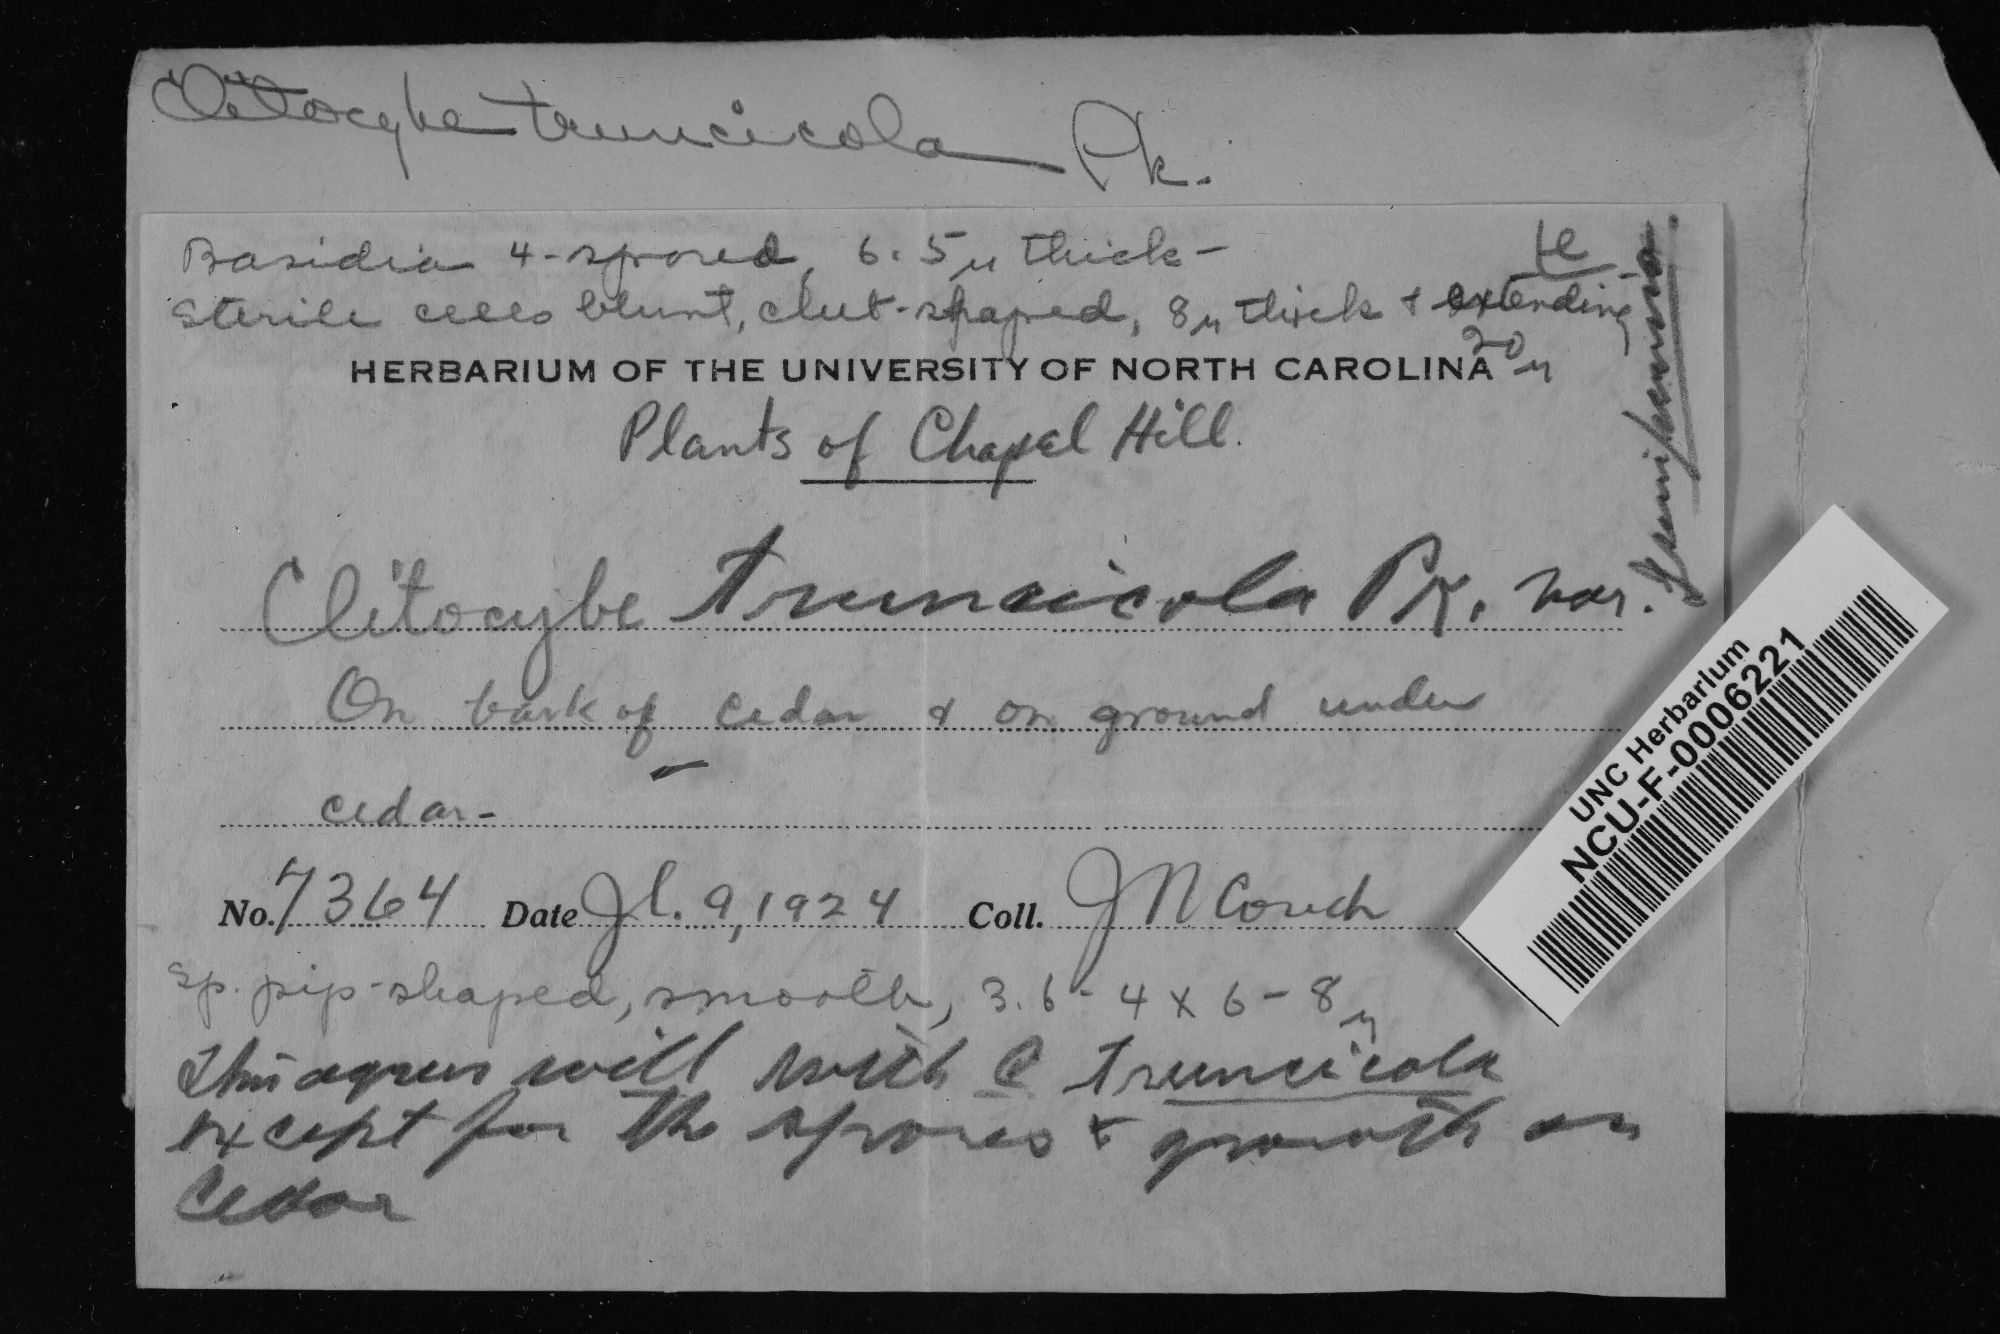 Clitocybe truncicola Pk.
Basidia 4-spored, 6.5µ thick-
Sterile cells blunt, club-shaped, 8µ thick & extending
20µ
HERBARIUM OF THE UNIVERSITY OF NORTH CAROLINA
Plants of Chapel Hill.
Clitocybe truncicola Pk. var.
On bark of cedar & on ground under
cedar-
No. 7364 Date Jl. 9, 1924 Coll. J N Couch
Sp. pip-shaped, smooth, 3.6-4 x 6-8µ
This agrees well with C truncicola
except for the spores & growth on
Cedar
UNC Herbarium
NCU-F-0006221